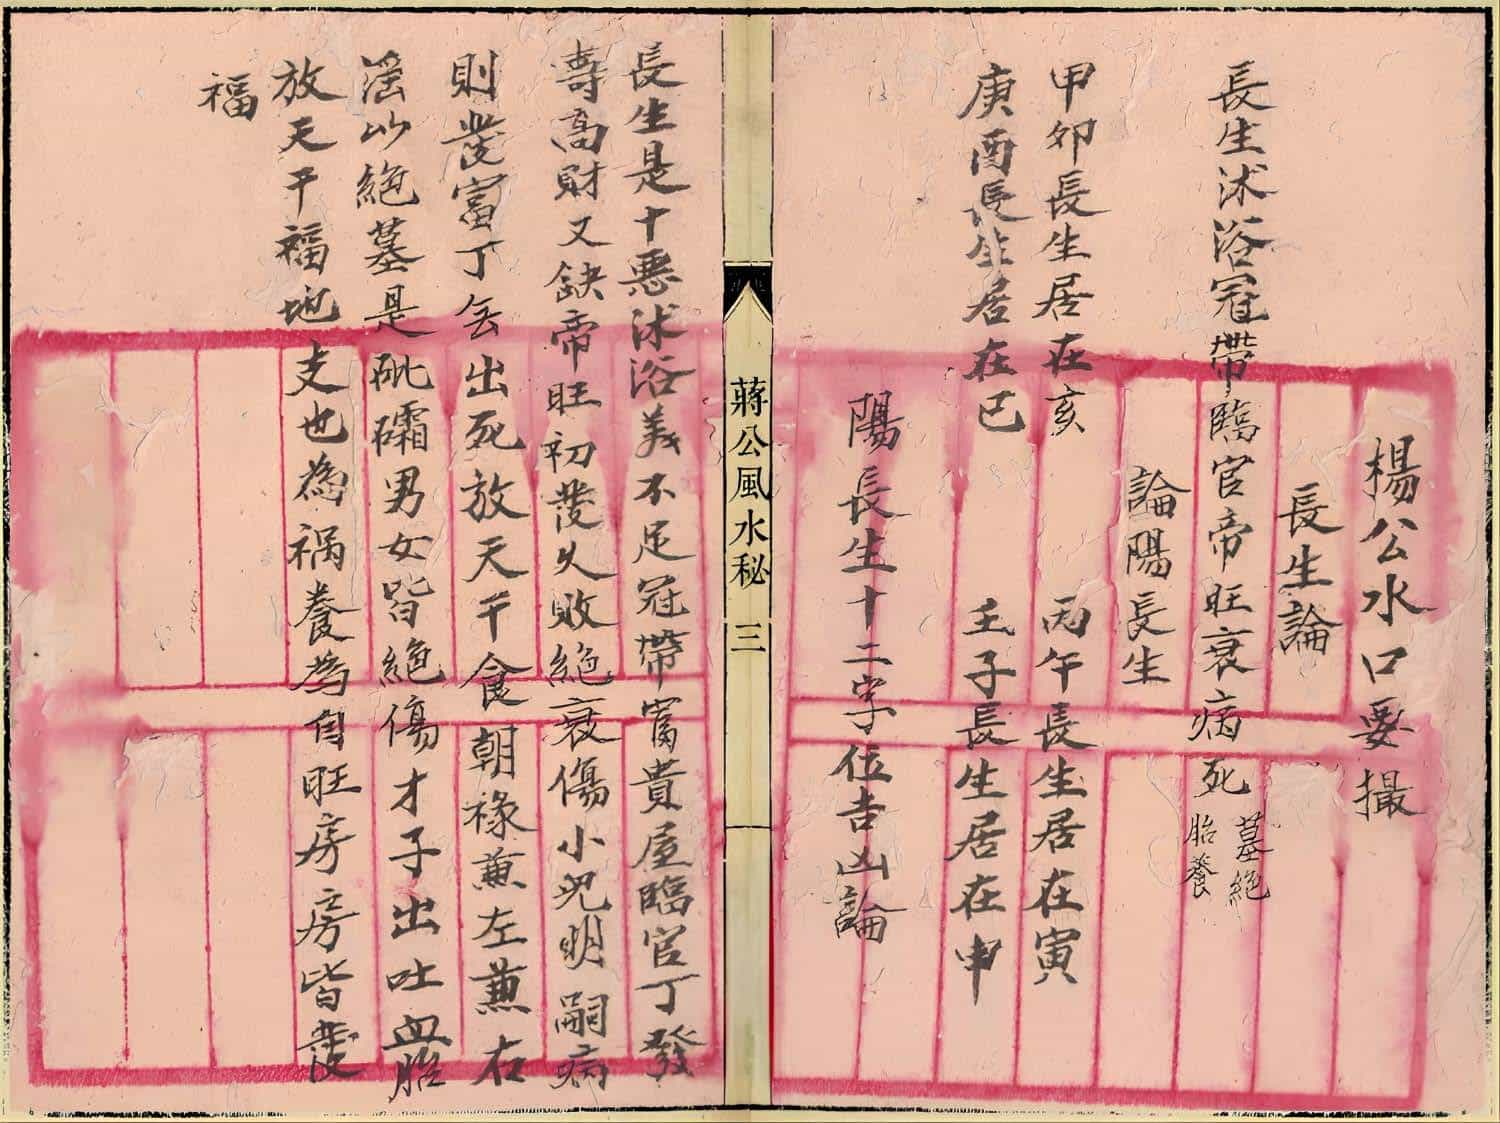 楊公水口要撮
長生論
長生沭浴冠帶臨官帝旺衰病死墓絕胎養
論陽長生
甲卯長生居在亥 丙午長生居在寅
庚酉長生居在巳 壬子長生居在申
陽長生十二字位吉凶論
蔣公風水秘 三
長生是十惡沭浴義不足冠帶富貴屋臨官丁發
壽高財又缺帝旺初發久敗絕衰傷小兒明嗣病
則發富丁丢出死放天干食朝祿兼左兼右
滛以絕墓是砒礵男女皆絕傷才子出吐血胎
放天干福地支也為禍養為自旺房房皆發
福